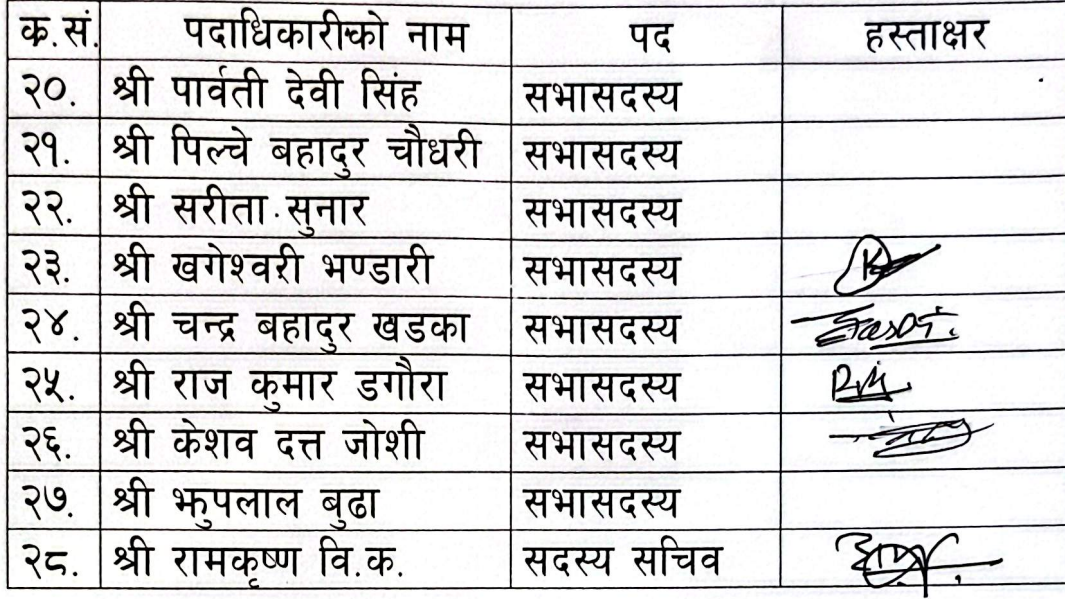 क.सं. पदाधिकारीको नाम पद हस्ताक्षर
२०. श्री पार्वती देवी सिंह सभासदस्य
२१. श्री पिल्चे बहादुर चौधरी सभासदस्य
२२. श्री सरीता सुनार सभासदस्य
२३. श्री खगेश्वरी भण्डारी सभासदस्य
२४. श्री चन्द्र बहादुर खडका सभासदस्य
२५. श्री राज कुमार डगौरा सभासदस्य
२६. श्री केशव दत्त जोशी सभासदस्य
२७. श्री झुपलाल बुढा सभासदस्य
२८. श्री रामकृष्ण वि.क. सदस्य सचिव